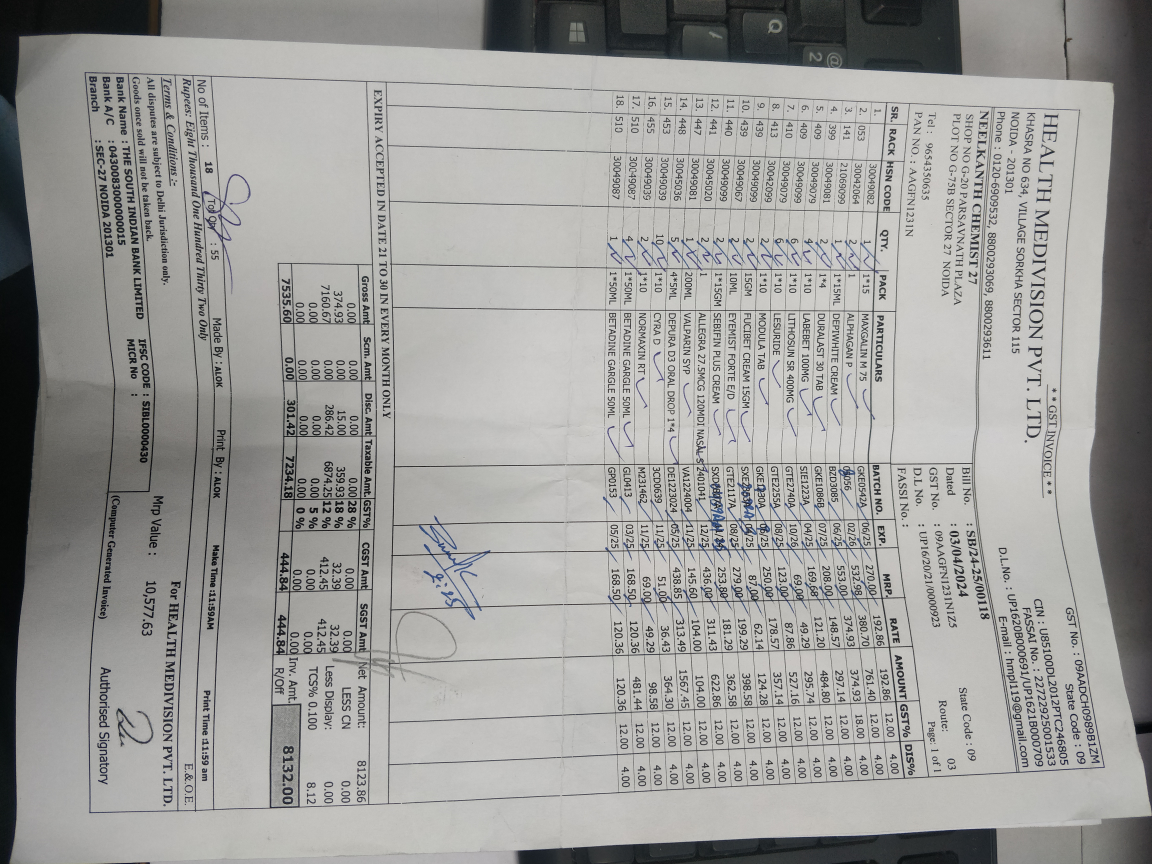 * * GST INVOICE * *
GST No. : 09AADCH0989B1ZM
State Code : 09
HEALTH MEDIVISION PVT. LTD.
CIN : U85100DL2012PTC246805
KHASRA NO 634, VILLAGE SORKHA SECTOR 115
FASSAI No. : 22722925001533
NOIDA - 201301
D.L.No. : UP1620B000691/UP1621B000709
Phone : 0120-6909532, 8800293069, 8800293611
E-mail : hmpl119@gmail.com
NEELKANTH CHEMIST 27
SHOP NO G-20 PARSAVNATH PLAZA
PLOT NO G-75B SECTOR 27 NOIDA
Tel : 9654350635
PAN NO. : AAGFN1231N
Bill No. : SB/24-25/00118 State Code : 09
Dated : 03/04/2024 Route: 03
GST No. : 09AAGFN1231N1Z5 Page: 1 of 1
D.I No. : UP16/20/21/0000923
FASSI No. :
SR. RACK HSN CODE QTY. PACK PARTICULARS BATCH NO. EXP. MRP. RATE AMOUNT GST% DIS%
1. 30049082 1 1*15 MAXGALIN M 75 GKE0542A 06/25 270.00 192.86 192.86 12.00 4.00
2. 053 30042064 2 1 ALPHAGAN P 02/26 532.98 380.70 761.40 12.00 4.00
3. 141 21069099 1 1*15ML DEPIWHITE CREAM BZD3085 06/25 553.00 374.93 374.93 18.00 4.00
4. 399 30049081 2 1*4 DURALAST 30 TAB GKE1088B 07/25 208.00 148.57 297.14 12.00 4.00
5. 409 30049079 4 1*10 LABEBET 100MG SIE1223A 04/25 169.68 121.20 484.80 12.00 4.00
6. 409 30049099 6 1*10 LITHOSUN SR 400MG GTE2740A 10/26 69.00 49.29 295.74 12.00 4.00
7. 410 30049079 6 1*10 LESURIDE GTE2255A 08/25 123.00 87.86 527.16 12.00 4.00
8. 413 30042099 2 1*10 MODULA TAB 250.00 178.57 357.14 12.00 4.00
9. 439 30049099 2 15GM FUCIBET CREAM 15GM 87.00 62.14 124.28 12.00 4.00
10. 439 30049067 2 10ML EYEMIST FORTE E/D GTE2117A 08/25 279.00 199.29 398.58 12.00 4.00
11. 440 30049099 2 1*15GM SEBIFIN PLUS CREAM 253.80 181.29 362.58 12.00 4.00
12. 441 30045020 2 1 ALLEGRA 27.5MCG 120MDI NASAL S 2401041 12/25 436.00 311.43 622.86 12.00 4.00
13. 447 30049081 1 200ML VALPARIN SYP VA1224004 11/25 145.60 104.00 104.00 12.00 4.00
14. 448 30045036 5 4*5ML DEPURA D3 ORAL DROP 1*4 DE1223024 05/25 438.85 313.49 1567.45 12.00 4.00
15. 453 30049039 10 1*10 CYRA D 3CD0639 11/25 51.00 36.43 364.30 12.00 4.00
16. 455 30049039 2 1*10 NORMAXIN RT M231462 11/25 69.00 49.29 98.58 12.00 4.00
17. 510 30049087 4 1*50ML BETADINE GARGLE 50ML GL0413 03/25 168.50 120.36 481.44 12.00 4.00
18. 510 30049087 1 1*50ML BETADINE GARGLE 50ML GP0153 05/25 168.50 120.36 120.36 12.00 4.00
EXPIRY ACCEPTED IN DATE 21 TO 30 IN EVERY MONTH ONLY
Gross Amt Scm. Amt Disc. Amt Taxable Amt. GST% CGST Amt SGST Amt Net Amount: 8123.86
0.00 0.00 0.00 0.00 28 % 0.00 0.00 LESS CN 0.00
374.93 0.00 15.00 359.93 18 % 32.39 32.39 Less Display: 0.00
7160.67 0.00 286.42 6874.25 12 % 412.45 412.45 TCS% 0.100 8.12
0.00 0.00 0.00 0.00 5 % 0.00 0.00
0.00 0.00 0.00 0.00 0 % 0.00 0.00 Inv. Amt. 8132.00
7535.60 0.00 301.42 7234.18 444.84 444.84 R/Off
No of Items : 18 Tot Qty : 55 Made By : ALOK Print By : ALOK Make Time :11:59AM Print Time :11:59 am E.& O.E.
Rupees: Eight Thousand One Hundred Thirty Two Only
Mrp Value : 10,577.63
For HEALTH MEDIVISION PVT. LTD.
Terms & Conditions :-
All disputes are subject to Delhi Jurisdiction only.
Goods once sold will not be taken back.
Bank Name : THE SOUTH INDIAN BANK LIMITED IFSC CODE : SIBL0000430
Bank A/C : 0430083000000015 MICR No :
Branch : SEC-27 NOIDA 201301
(Computer Generated Invoice)
Authorised Signatory